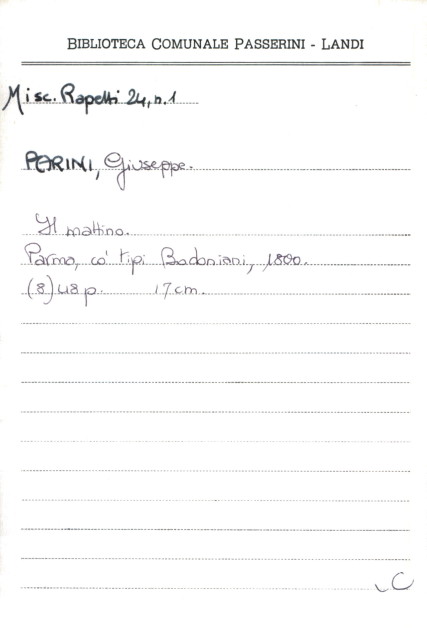 BIBLIOTECA COMUNALE PASSERINI - LANDI
Misc. Rapetti 24, n.1
PARINI, Giuseppe.
Il mattino.
Parma, co' tipi Bodoniani, 1800.
(8) 48 p. 17 cm.